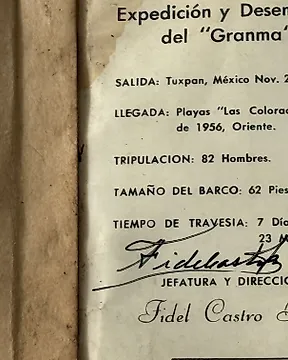 Expedición y Desem
del "Granma"
SALIDA: Tuxpan, México Nov. 2
LLEGADA: Playas "Las Colorad
de 1956, Oriente.
TRIPULACION: 82 Hombres.
TAMAÑO DEL BARCO: 62 Pies
TIEMPO DE TRAVESIA: 7 Día
23
Fidel Castro
JEFATURA Y DIRECCIO
Fidel Castro